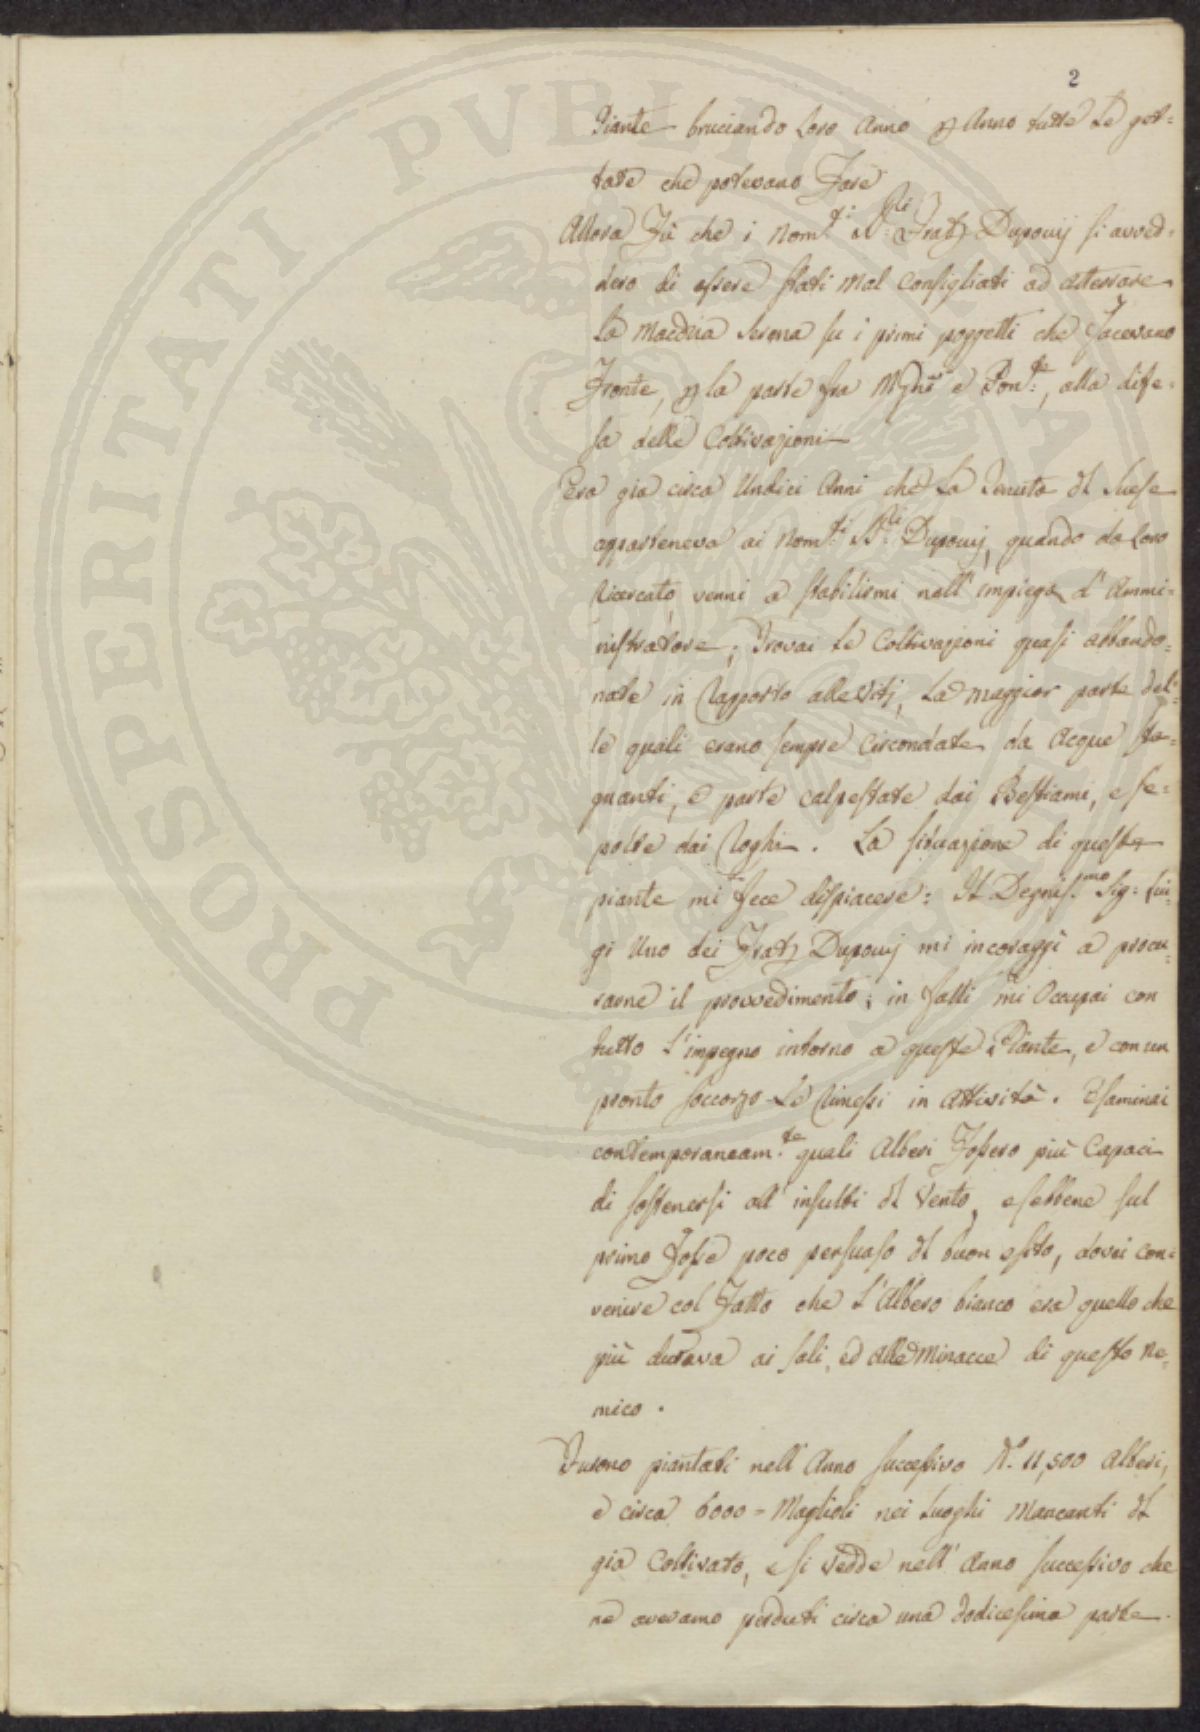 2
Piante bruciando loro anno p Anno tutte le get=
tate che potevano Fare
Allora Fù che i Nom.ti SS.ri Frat.lli Dupouij si avved=
dero di essere stati mal consigliati ad atterrare
la Macchia Serena su i primi poggetti che Facevano
Fronte, p la parte fra e Pon.te, alla dife=
sa delle Coltivazioni
Era gia circa Undici Anni che la Tenuta dl Suese
apparteneva ai Nom.ti SS.ri Dupouij, quando da loro
Ricercato, venni a stabilirmi nell' impiego d' Ammi=
nistratore; Trovai le Coltivazioni quasi abbando=
nate in Rapporto alle Viti, la maggior parte del=
le quali erano sempre Circondate da Acque sta=
gnanti, e parte calpestate dai Bestiami, e se=
polte dai Roghi. La situazione di queste
piante mi fece dispiacere: Il Degnis.mo Sig: Lui=
gi Uno dei Frat.lli Dupouij mi incoraggì a procu=
rarne il provvedimento; in fatti mi Occupai con
tutto l'impegno intorno a queste Piante, e con un
pronto soccorso le Rimessi in Attività. Esaminai
contemporaneam.te quali Alberi Fossero più Capaci
di sostenersi all' insulti dl Vento, e sebbene sul
primo Fosse poco persuaso dl buon esito, dovei con=
venire col Fatto che l'Albero bianco era quello che
più durava ai sali, ed alle Minacce di questo Ne=
mico.
Furono piantati nell' Anno successivo N.o 11,500 Alberi,
e circa 6000 = Maglioli nei Luoghi Mancanti dl
gia Coltivato, e si vedde nell' Anno successivo che
ne avevamo perduti circa una dodicesima parte.
PROSPERITATI PVBLICAE